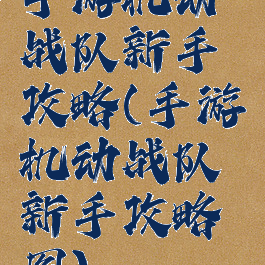 手游机动
战队新手
攻略(手游
机动战队
新手攻略
图)